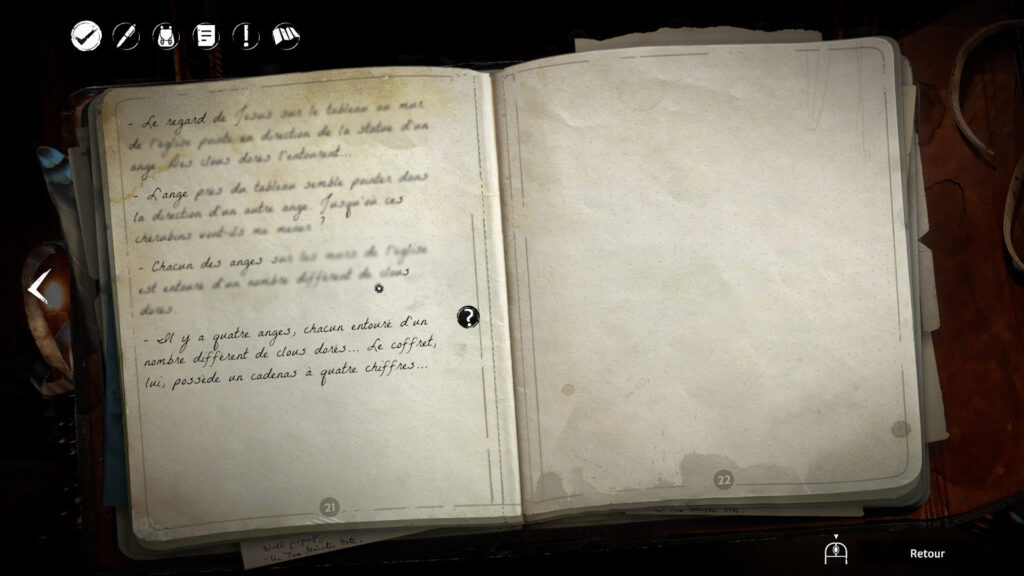 - Le regard de Jesus sur le tableau au mur
de l'église pointe en direction de la statue d'un
ange. Des clous dorés l'entourent...
- L'ange près du tableau semble pointer dans
la direction d'un autre ange. Jusqu'où ces
chérubins vont-ils me mener ?
- Chacun des anges sur les murs de l'église
est entouré d'un nombre différent de clous
dorés.
- Il y a quatre anges, chacun entouré d'un
nombre différent de clous dorés... Le coffret,
lui, possède un cadenas à quatre chiffres...
?
21
22
Retour